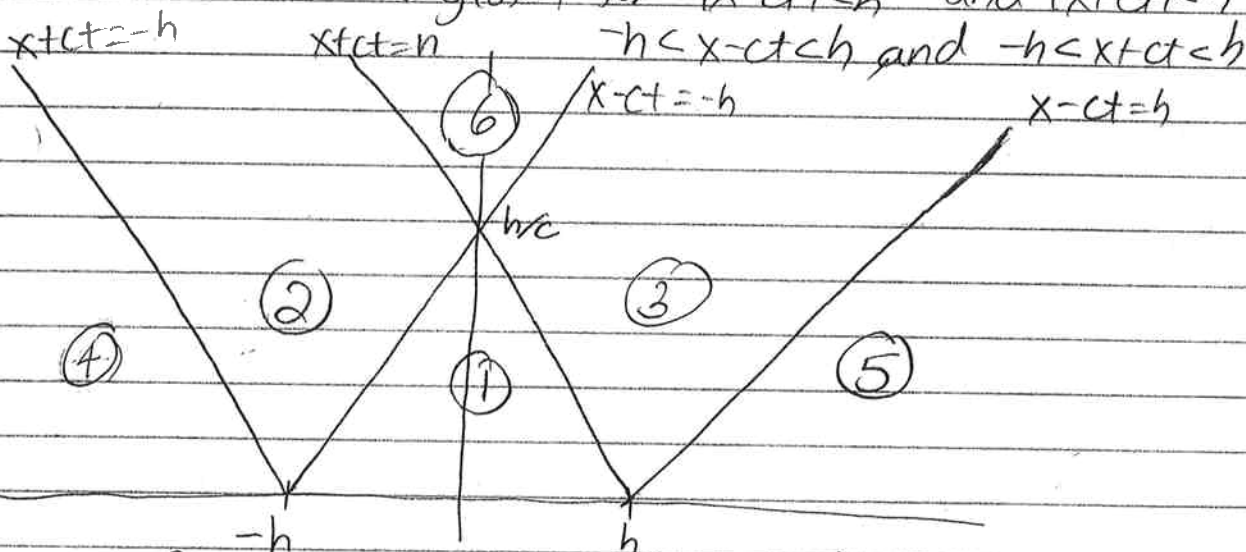 and
x+ct=-h x+ct=h -h<x-ct<h and -h<x+ct<h
x-ct=-h x-ct=h
6
h/c
2 3
4 1 5
-h h